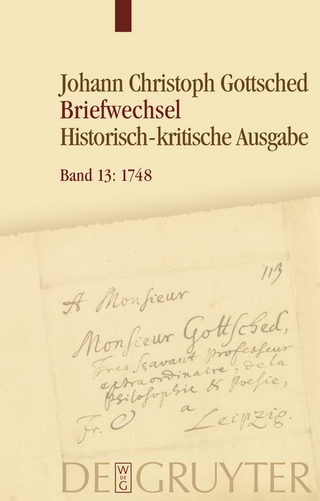 Johann Christoph Gottsched
Briefwechsel
Historisch-kritische Ausgabe
Band 13: 1748
113
A Monsieur
Monsieur Gottsched,
Tres Sçavant Professeur
extraordinaire, de la
Philosophie & Poesie,
a
Fr. O Leipzig.
DE GRUYTER
W
DE
G